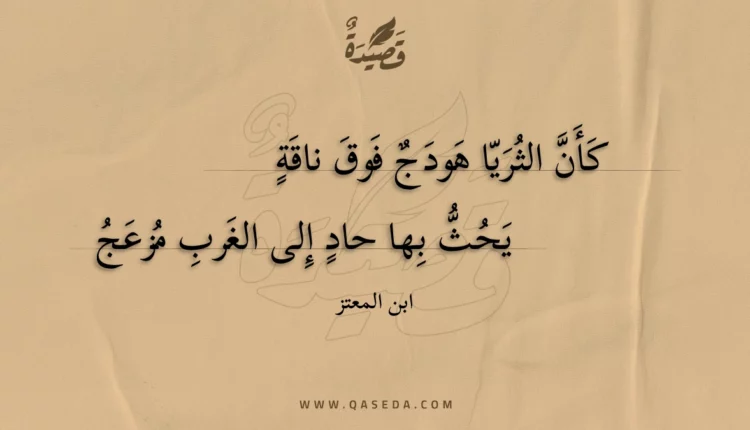 قَصِيْدَةٌ
كَأَنَّ الثُرَيّا هَودَجٌ فَوقَ ناقَةٍ
يَحُثُّ بِها حادٍ إِلى الغَربِ مُزعَجُ
ابن المعتز
WWW.QASEDA.COM